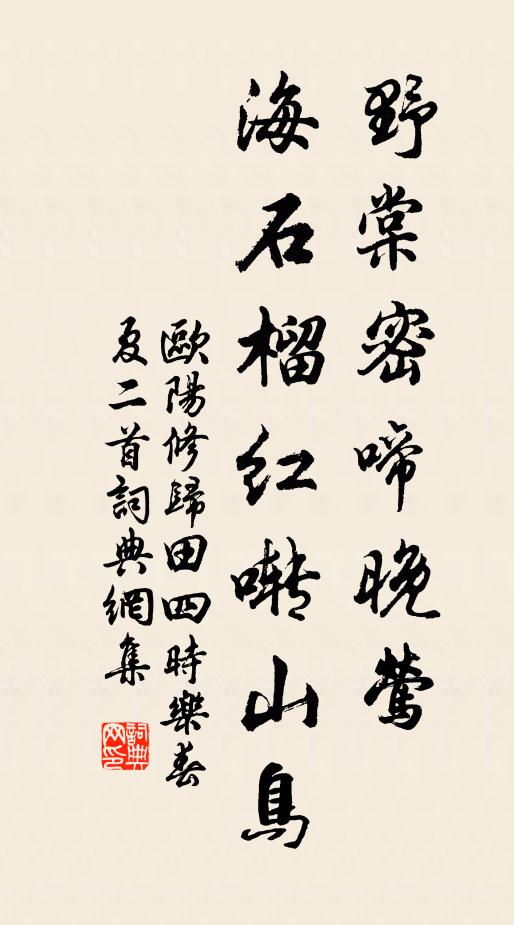 野棠密啼晚莺
海石榴红啭山鸟
歐陽修歸田四時樂春
夏二首詞典網集
詞典
网印